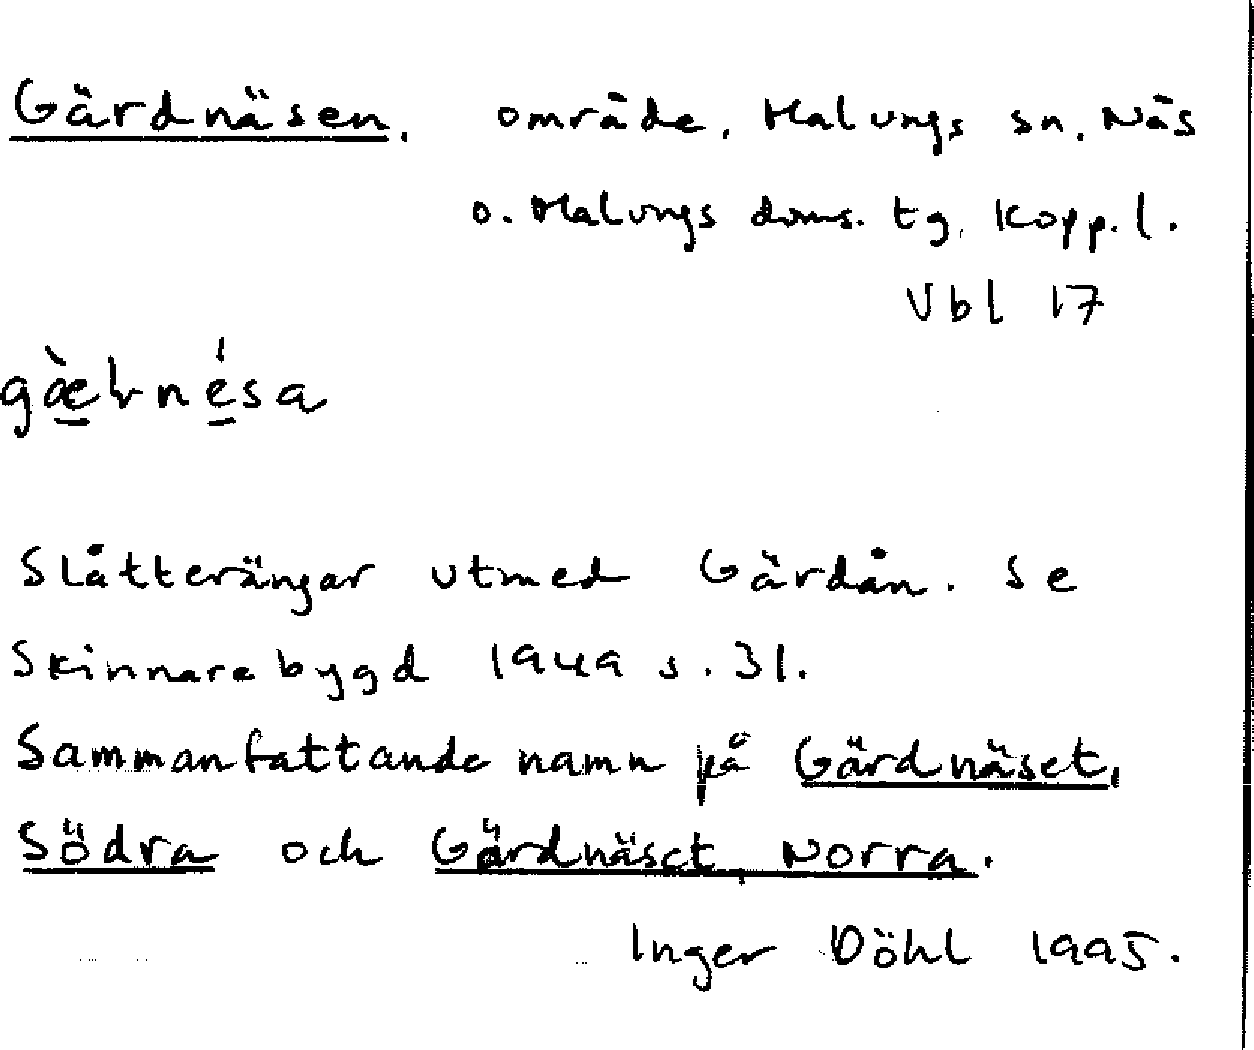 Gärdnäsen. område, Malungs sn. Näs
o. Malungs doms. tg. Kopp. l.
Vbl 17
Slåtterängar utmed Gärdån. Se
Skinnarebygd 1949 s. 31.
Sammanfattande namn på Gärdnäset,
Södra och Gärdnäset, Norra.
Inger Döhl 1995.